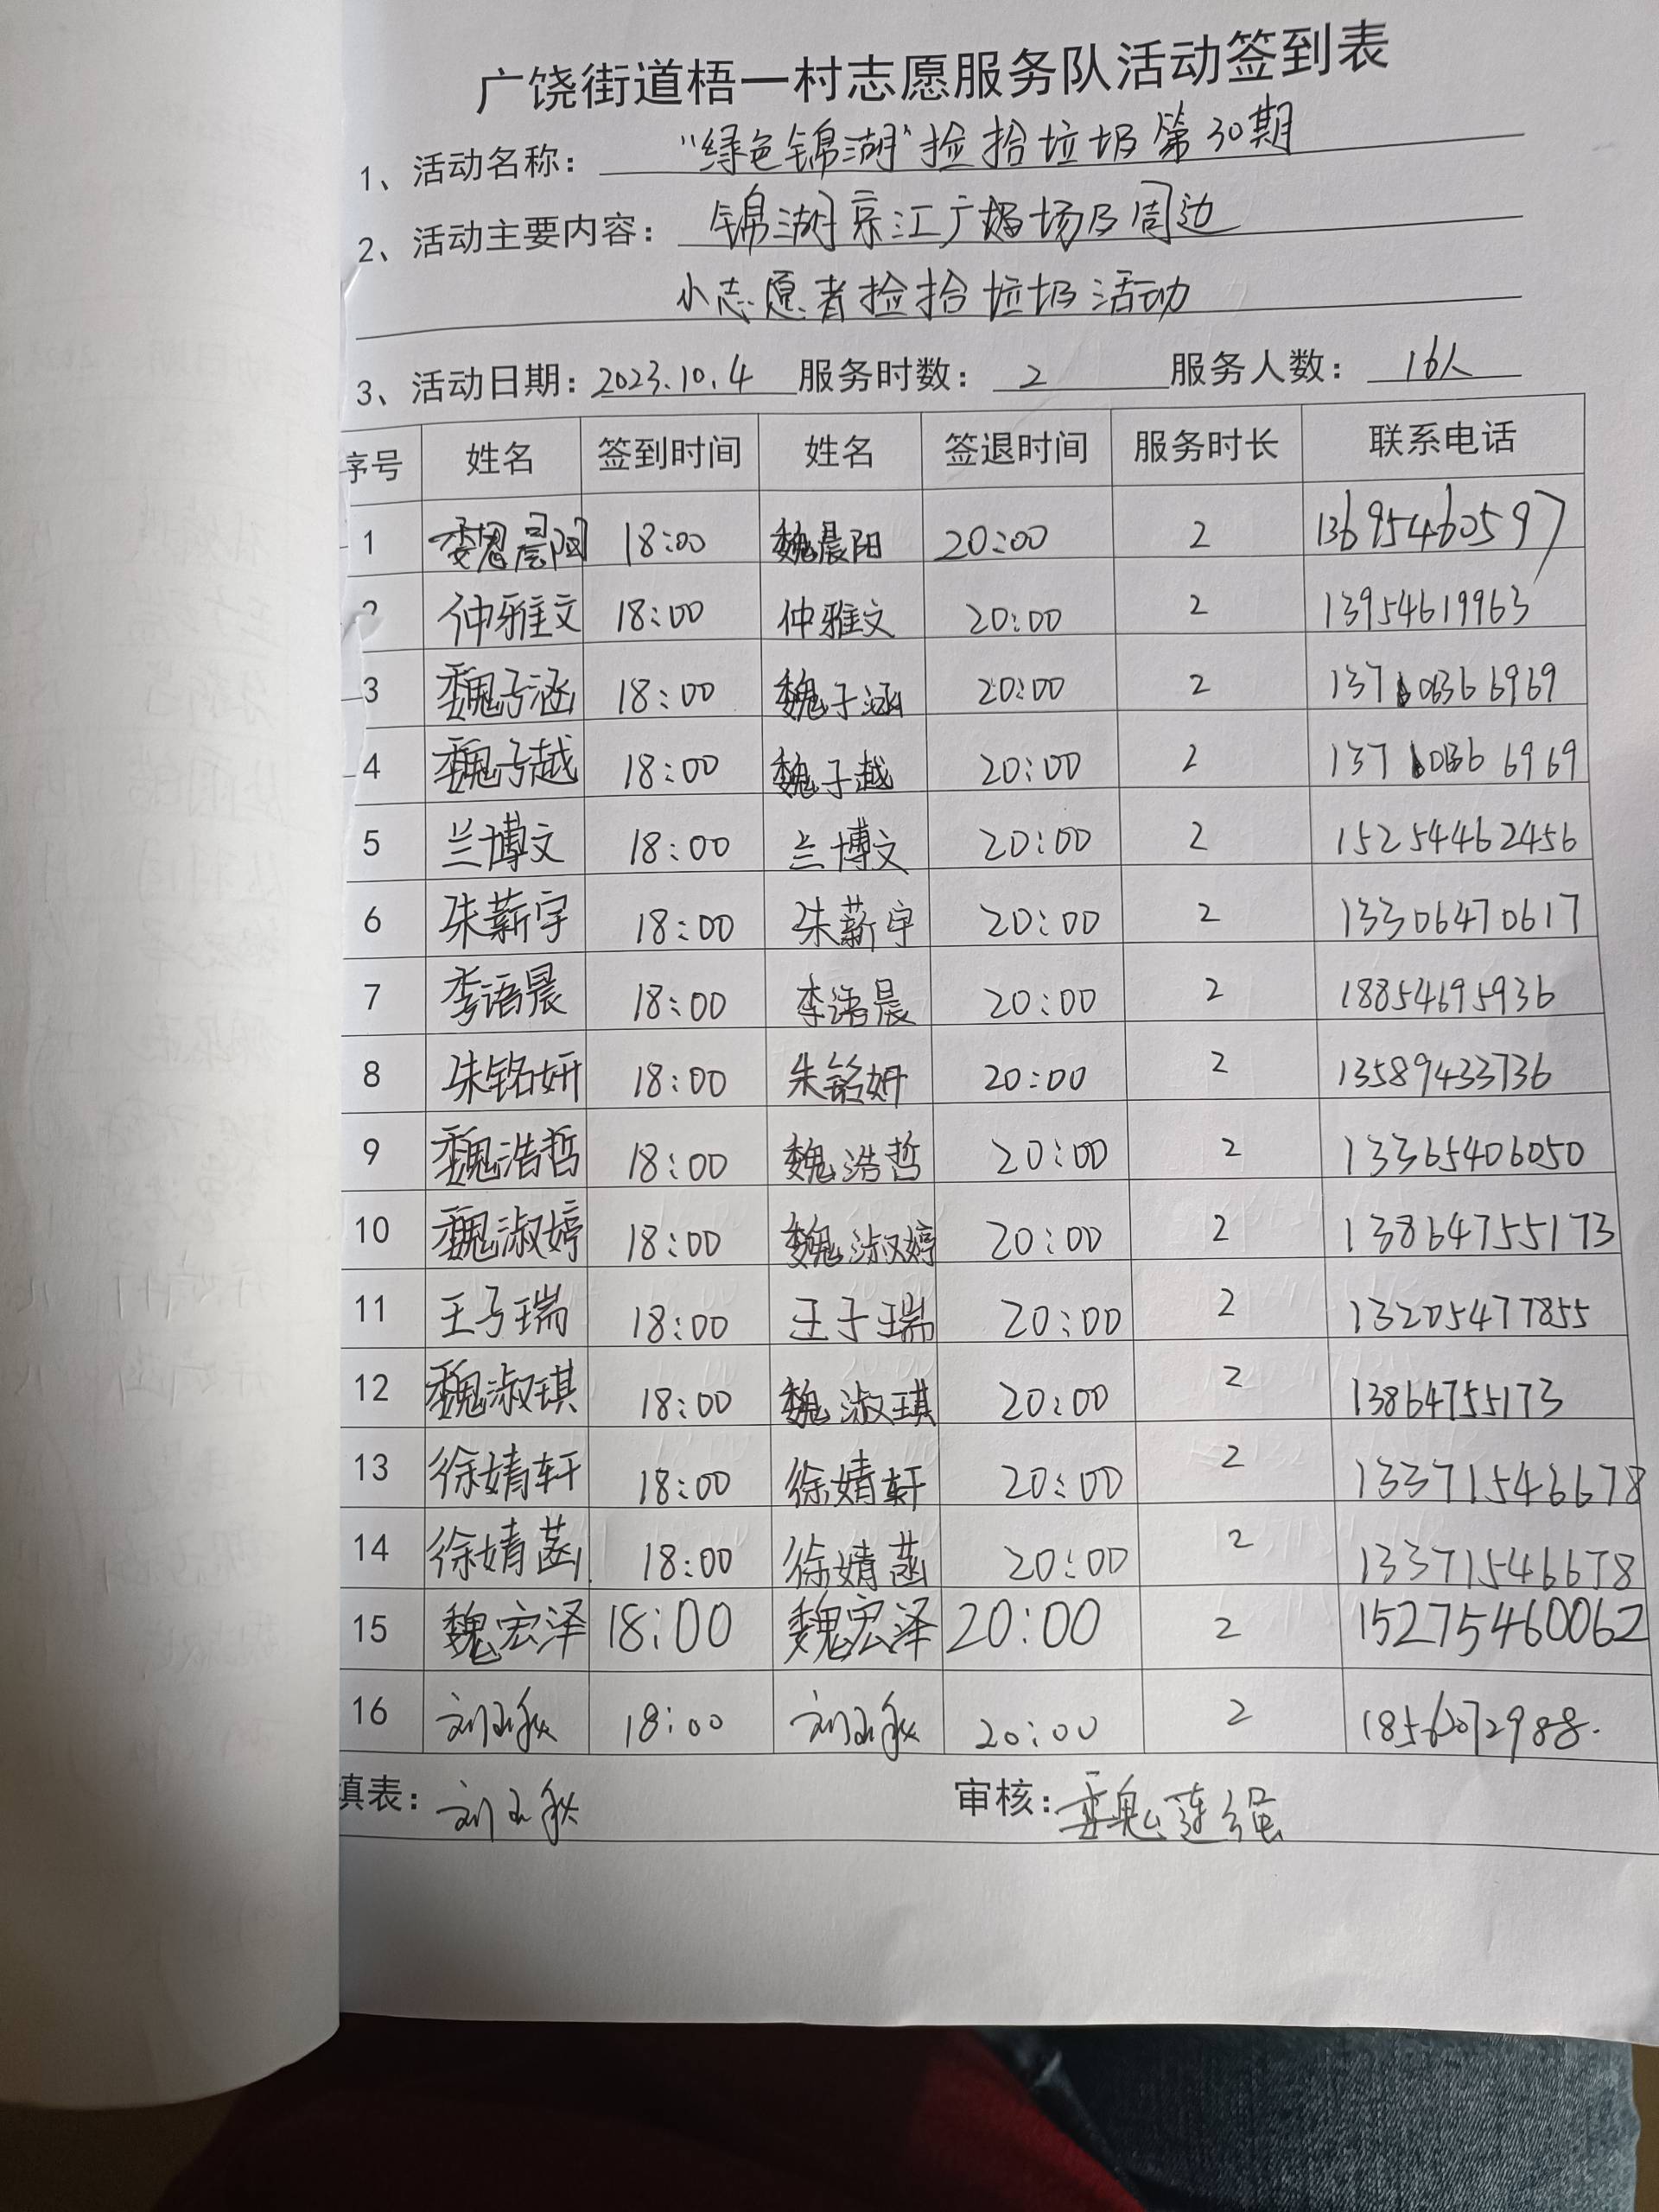 广饶街道梧一村志愿服务队活动签到表
1、活动名称：“绿色锦湖”捡拾垃圾第30期
2、活动主要内容：锦湖京江广场及周边
小志愿者捡拾垃圾活动
3、活动日期：2023.10.4 服务时数：2 服务人数：16人
序号 姓名 签到时间 姓名 签退时间 服务时长 联系电话
1 魏晨阳 18:00 魏晨阳 20:00 2 13695460597
2 仲雅文 18:00 仲雅文 20:00 2 13954619963
3 魏子涵 18:00 魏子涵 20:00 2
4 魏子越 18:00 魏子越 20:00 2
5 兰博文 18:00 兰博文 20:00 2 15254462456
6 朱薪宇 18:00 朱薪宇 20:00 2 13306470617
7 李语晨 18:00 李语晨 20:00 2 18854695936
8 朱铭妍 18:00 朱铭妍 20:00 2 13589433736
9 魏浩哲 18:00 魏浩哲 20:00 2 13365406050
10 魏淑婷 18:00 魏淑婷 20:00 2 13864755173
11 王子瑞 18:00 王子瑞 20:00 2 13205477855
12 魏淑琪 18:00 魏淑琪 20:00 2 13864755173
13 徐婧轩 18:00 徐婧轩 20:00 2 13371546678
14 徐婧菡 18:00 徐婧菡 20:00 2 13371546678
15 魏宏泽 18:00 魏宏泽 20:00 2 15275460062
16 刘玉秋 18:00 刘玉秋 20:00 2 18562072988.
填表：刘玉秋 审核：魏莲强